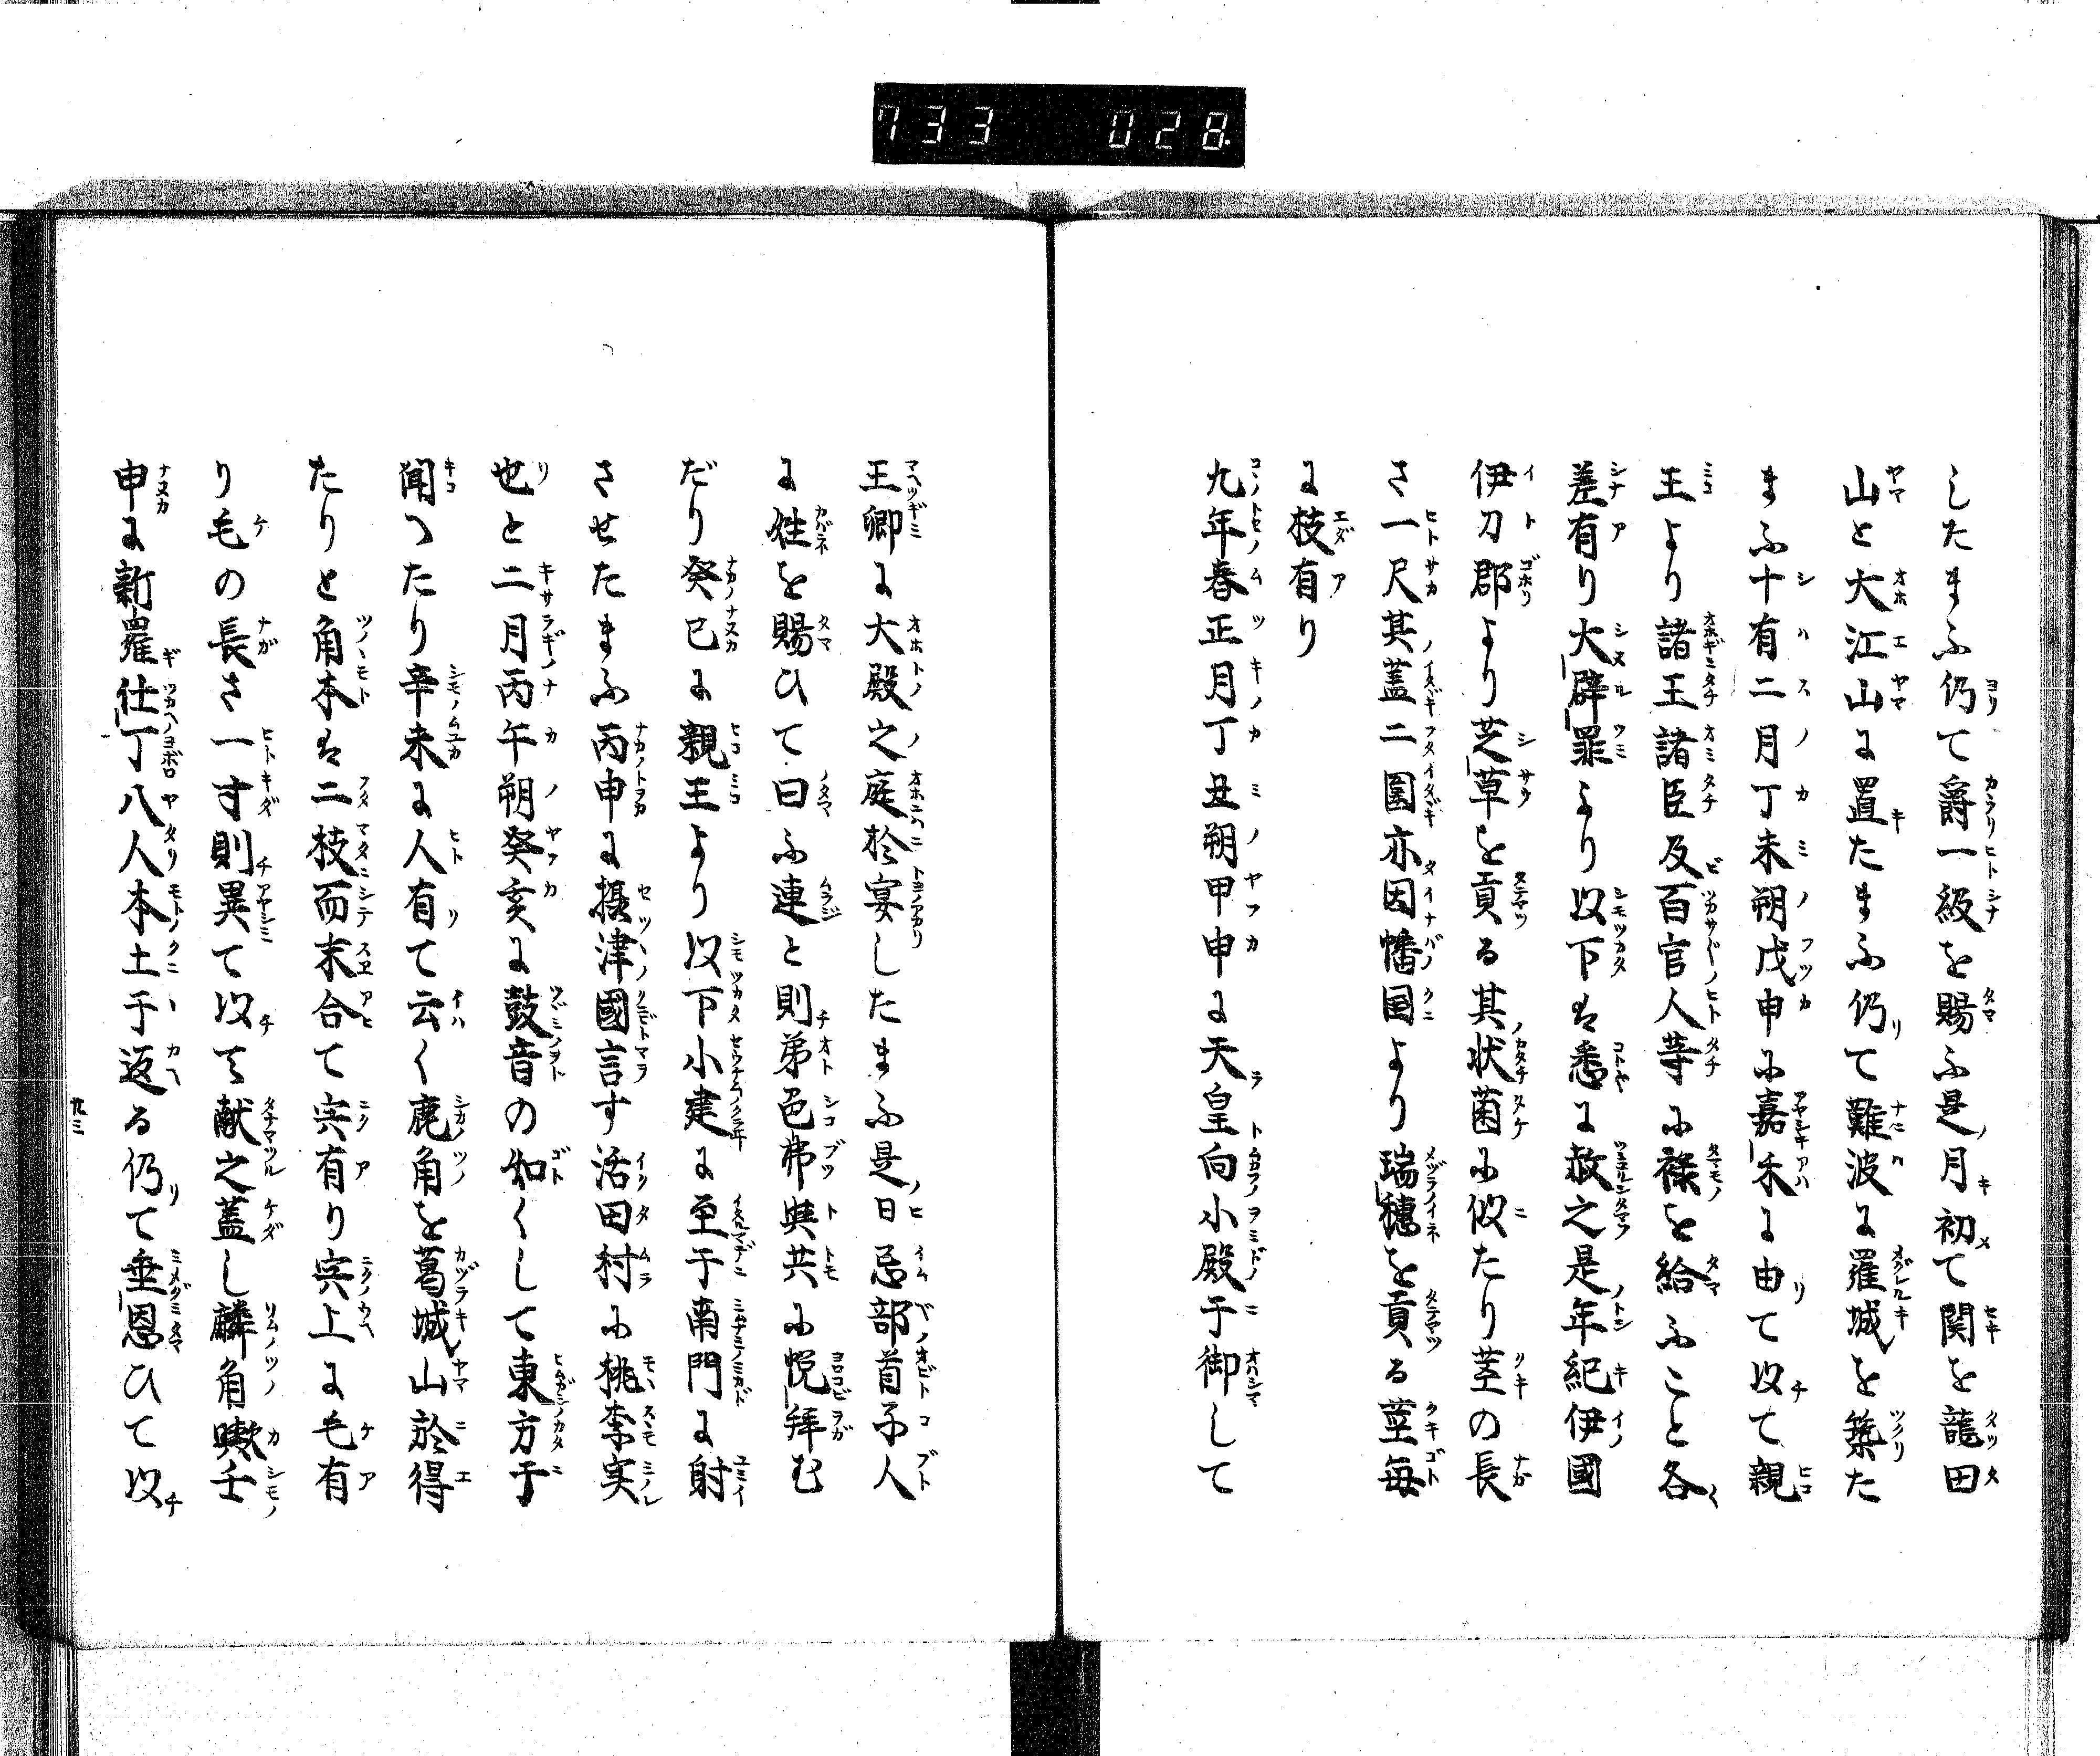 733 028
したまふ仍て爵一級を賜ふ是月初て関を龍田
山と大江山に置たまふ仍て難波に羅城を築た
まふ十有二月丁未朔戊申に嘉禾に由て以て親
王より諸王諸臣及百官人等に禄を給ふこと各
差有り大辟罪より以下は悉に赦之是年紀伊國
伊刀郡より芝草を貢る其状菌に似たり茎の長
さ一尺其蓋二囲亦因幡国より瑞穂を貢る茎毎
に枝有り
九年春正月丁丑朔甲申に天皇向小殿于御して
王卿に大殿之庭於宴したまふ是日忌部首子人
に姓を賜ひて曰ふ連と則弟色弗與共に悦拝む
だり癸巳に親王より以下小建に至于南門に射
させたまふ丙申に摂津國言す活田村に桃李実
也と二月丙午朔癸亥に鼓音の如くして東方于
聞つたり辛未に人有て云く鹿角を葛城山於得
たりと角本は二枝而末合て宍有り宍上に毛有
り毛の長さ一寸則異て以て献之蓋し麟角歟壬
申に新羅仕丁八人本土于返る仍て垂恩ひて以
九三